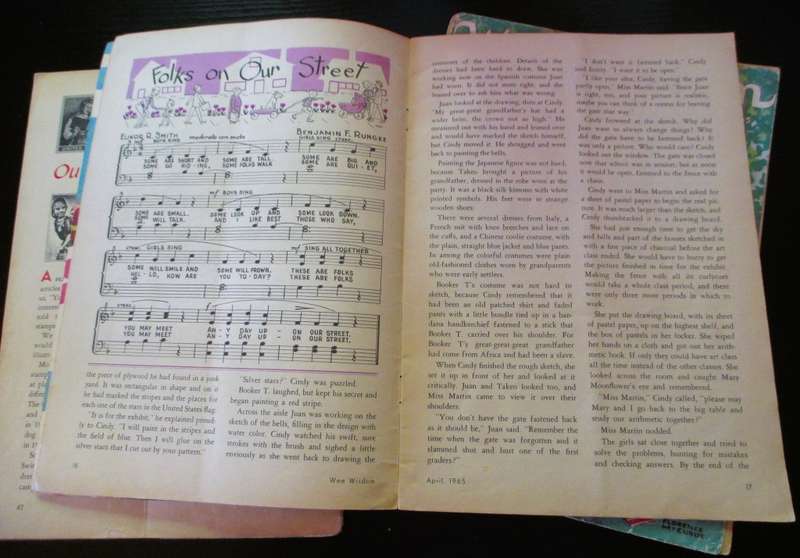 Folks on Our Street
ELINOR R. SMITH
BENJAMIN F. RUNGEE
BOYS SING
GIRLS SING
SOME ARE SHORT AND SOME ARE TALL. SOME ARE BIG AND
SOME GO RIDING, SOME FOLKS WALK SOME ARE QUI-ET,
BOYS SING
SOME ARE SMALL. SOME LOOK UP AND SOME LOOK DOWN.
SOME WILL TALK. AND I LIKE BEST THOSE WHO SAY,
GIRLS SING
SING ALL TOGETHER
SOME WILL SMILE AND SOME WILL FROWN. THESE ARE FOLKS
HEL-LO, HOW ARE YOU TO-DAY? THESE ARE FOLKS
YOU MAY MEET AN-Y DAY UP-ON OUR STREET.
YOU MAY MEET AN-Y DAY UP-ON OUR STREET.
the piece of plywood he had found in a junk
yard. It was rectangular in shape and on it
he had marked the stripes and the places for
each one of the stars in the United States flag.
"It is for the exhibit," he explained proud-
ly to Cindy. "I will paint in the stripes and
the field of blue. Then I will glue on the
silver stars that I cut out by your pattern."
"Silver stars?" Cindy was puzzled.
Booker T. laughed, but kept his secret and
began painting a red stripe.
Across the aisle Juan was working on the
sketch of the bells, filling in the design with
water color. Cindy watched his swift, sure
strokes with the brush and sighed a little
enviously as she went back to drawing the
16
Wee Wisdom
costumes of the children. Details of the
dresses had been hard to draw. She was
working now on the Spanish costume Juan
had worn. It did not seem right, and she
leaned over to ask him what was wrong.
Juan looked at the drawing, then at Cindy.
"My great-great grandfather's hat had a
wider brim, the crown not so high." He
measured out with his hand and leaned over
and would have marked the sketch himself,
but Cindy moved it. He shrugged and went
back to painting the bells.
Painting the Japanese figure was not hard,
because Taken brought a picture of his
grandfather, dressed in the robe worn at the
party. It was a black silk kimono with white
printed symbols. His feet were in strange
wooden shoes.
There were several dresses from Italy, a
French suit with knee breeches and lace on
the cuffs, and a Chinese coolie costume, with
the plain, straight blue jacket and blue pants.
In among the colorful costumes were plain
old-fashioned clothes worn by grandparents
who were early settlers.
Booker T's costume was not hard to
sketch, because Cindy remembered that it
had been an old patched shirt and faded
pants with a little bundle tied up in a ban-
danna handkerchief fastened to a stick that
Booker T. carried over his shoulder. For
Booker T's great-great-great grandfather
had come from Africa and had been a slave.
When Cindy finished the rough sketch, she
set it up in front of her and looked at it
critically. Juan and Taken looked too, and
Miss Martin came to view it over their
shoulders.
"You don't have the gate fastened back
as it should be," Juan said. "Remember the
time when the gate was forgotten and it
slammed shut and hurt one of the first
graders?"
"I don't want it fastened back," Cindy
said firmly. "I want it to be open."
"I like your idea, Cindy, having the gate
partly open," Miss Martin said. "Since Juan
is right, too, and your picture is realistic,
maybe you can think of a reason for leaving
the gate that way."
Cindy frowned at the sketch. Why did
Juan want to always change things? Why
did the gate have to be fastened back? It
was only a picture. Who would care? Cindy
looked out the window. The gate was closed
now that school was in session, but at noon
it would be open, fastened to the fence with
a chain.
Cindy went to Miss Martin and asked for
a sheet of pastel paper to begin the real pic-
ture. It was much larger than the sketch, and
Cindy thumbtacked it to a drawing board.
She had just enough time to get the sky
and hills and part of the houses sketched in
with a fine piece of charcoal before the art
class ended. She would have to hurry to get
the picture finished in time for the exhibit.
Making the fence with all its curlicues
would take a whole class period, and there
were only three more periods in which to
work.
She put the drawing board, with its sheet
of pastel paper, up on the highest shelf, and
the box of pastels in her locker. She wiped
her hands on a cloth and got out her arith-
metic book. If only they could have art class
all the time instead of the other classes. She
looked across the room and caught Mary
Moonflower's eye and remembered.
"Miss Martin," Cindy called, "please may
Mary and I go back to the big table and
study our arithmetic together?"
Miss Martin nodded.
The girls sat close together and tried to
solve the problems, hunting for mistakes
and checking answers. By the end of the
April, 1965
17
42